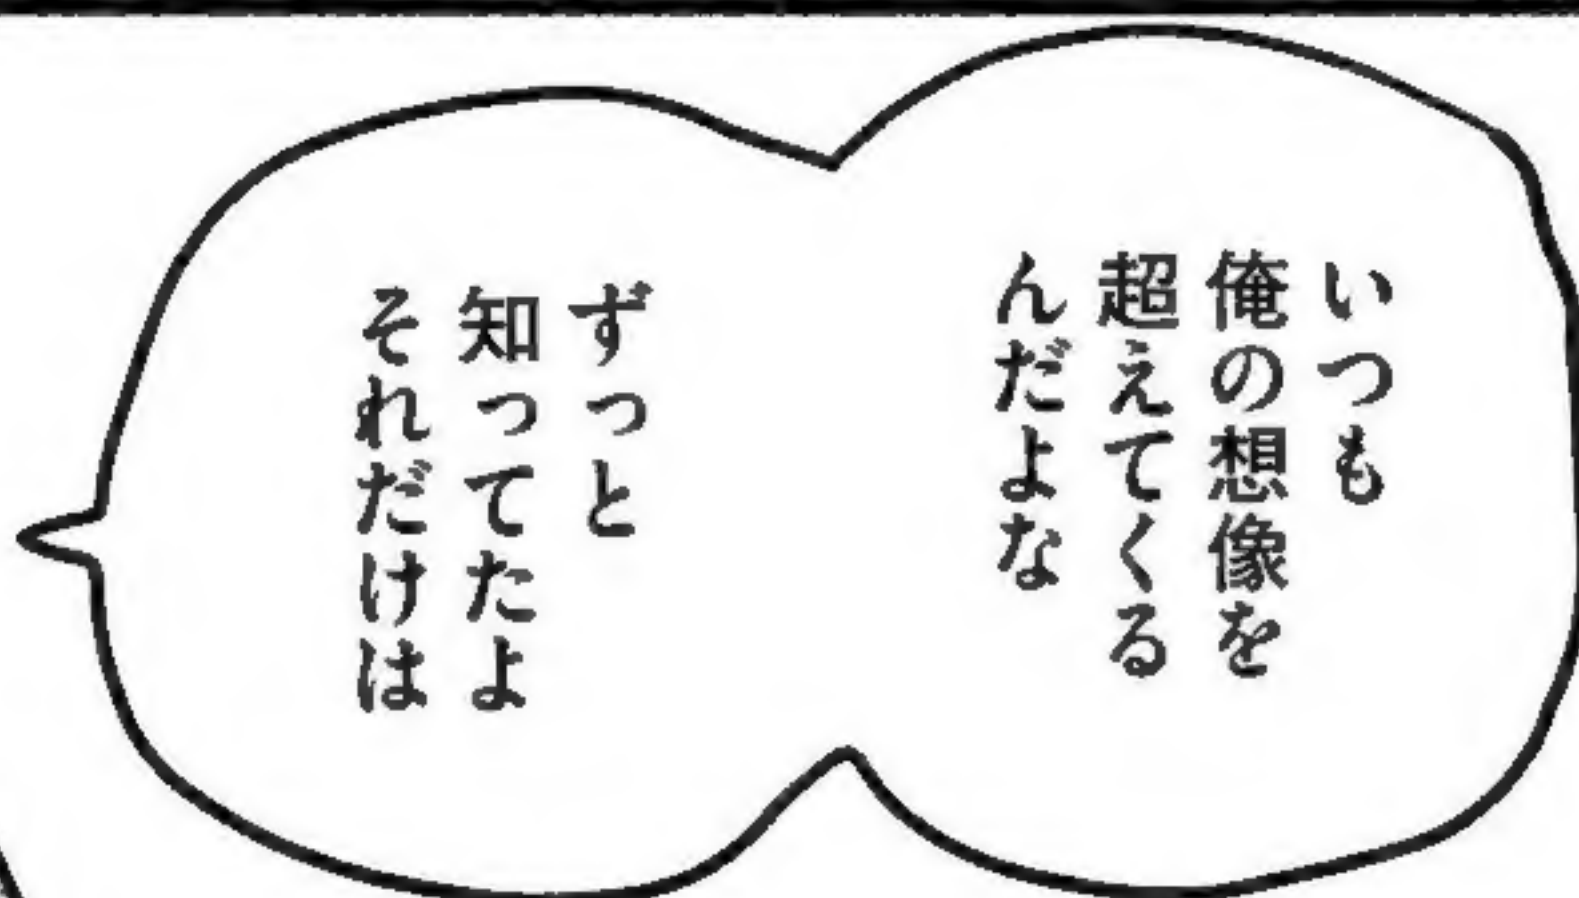 いつも
俺の想像を
超えてくる
んだよな
ずっと
知ってたよ
それだけは